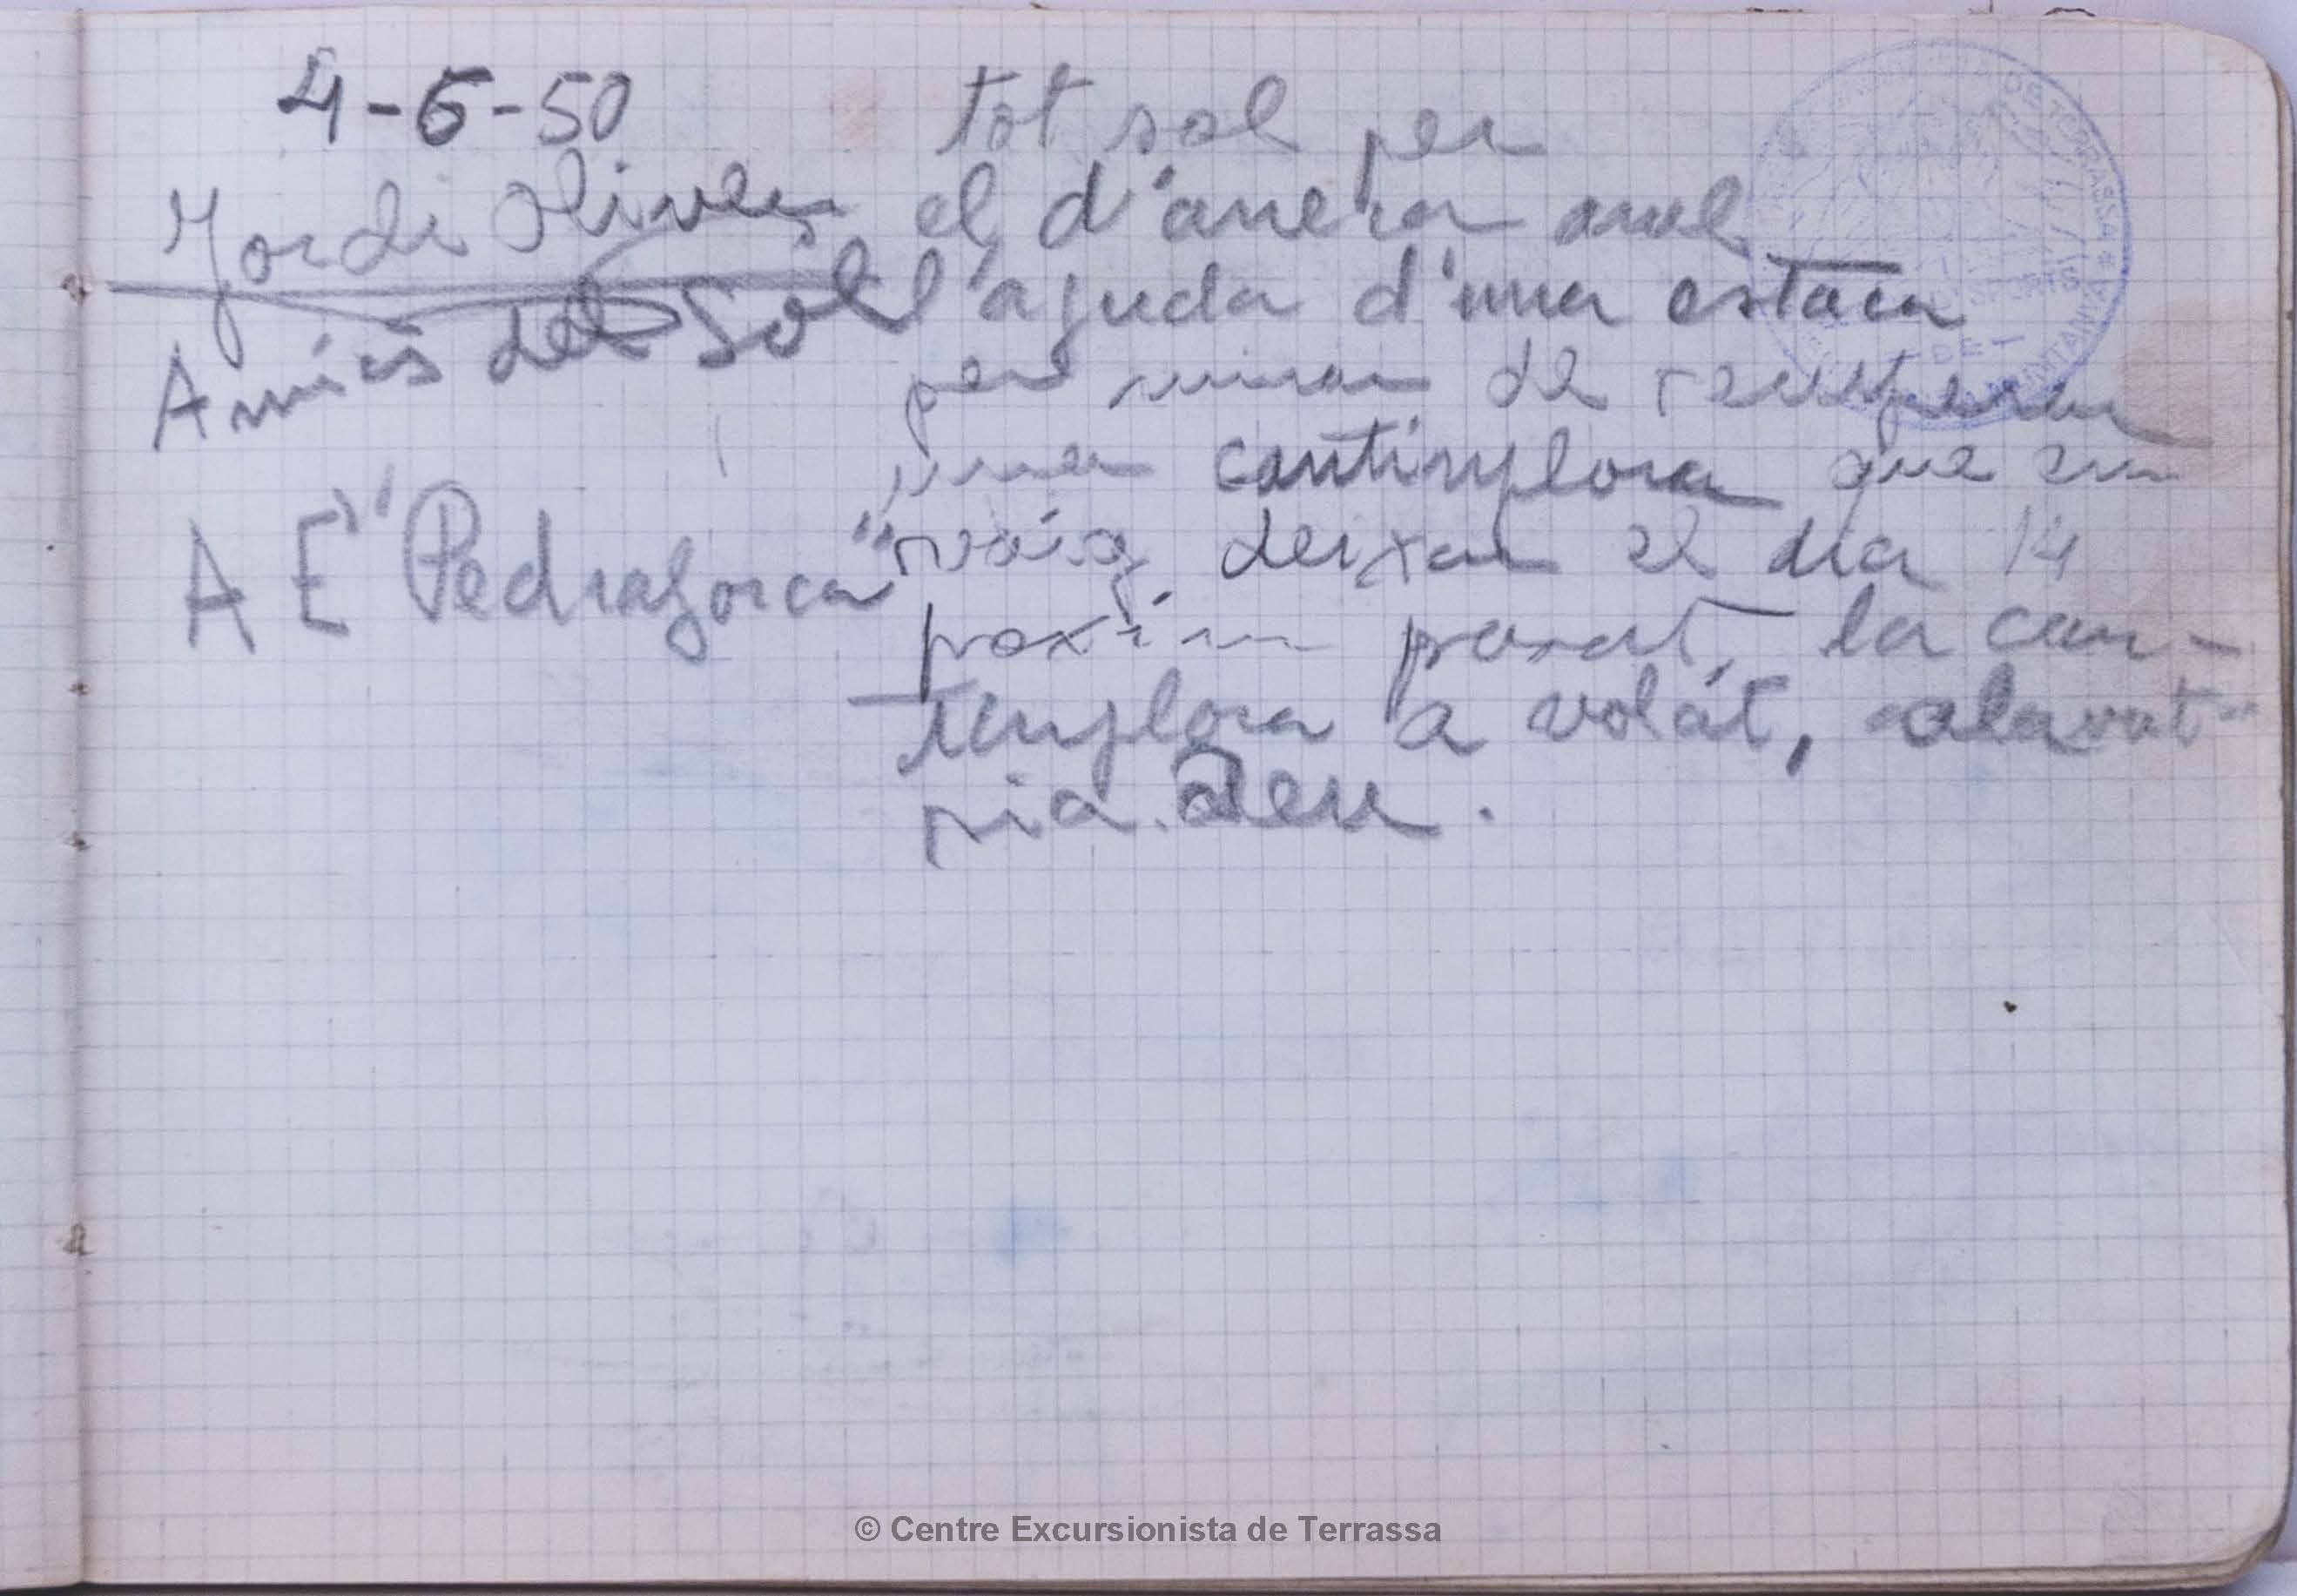 4-6-50
Jordi Oliver
Amics del Sol
A E "Pedraforca"
tot sol per
el d'arrera amb
l'ajuda d'una estaca
per mirar de recuperar
una cantinplora que em
vaig deixar el dia 14
proxim pasat, la can-
tinplora a volát,
pia. adeu.
TERRASSA *
- DE -
© Centre Excursionista de Terrassa